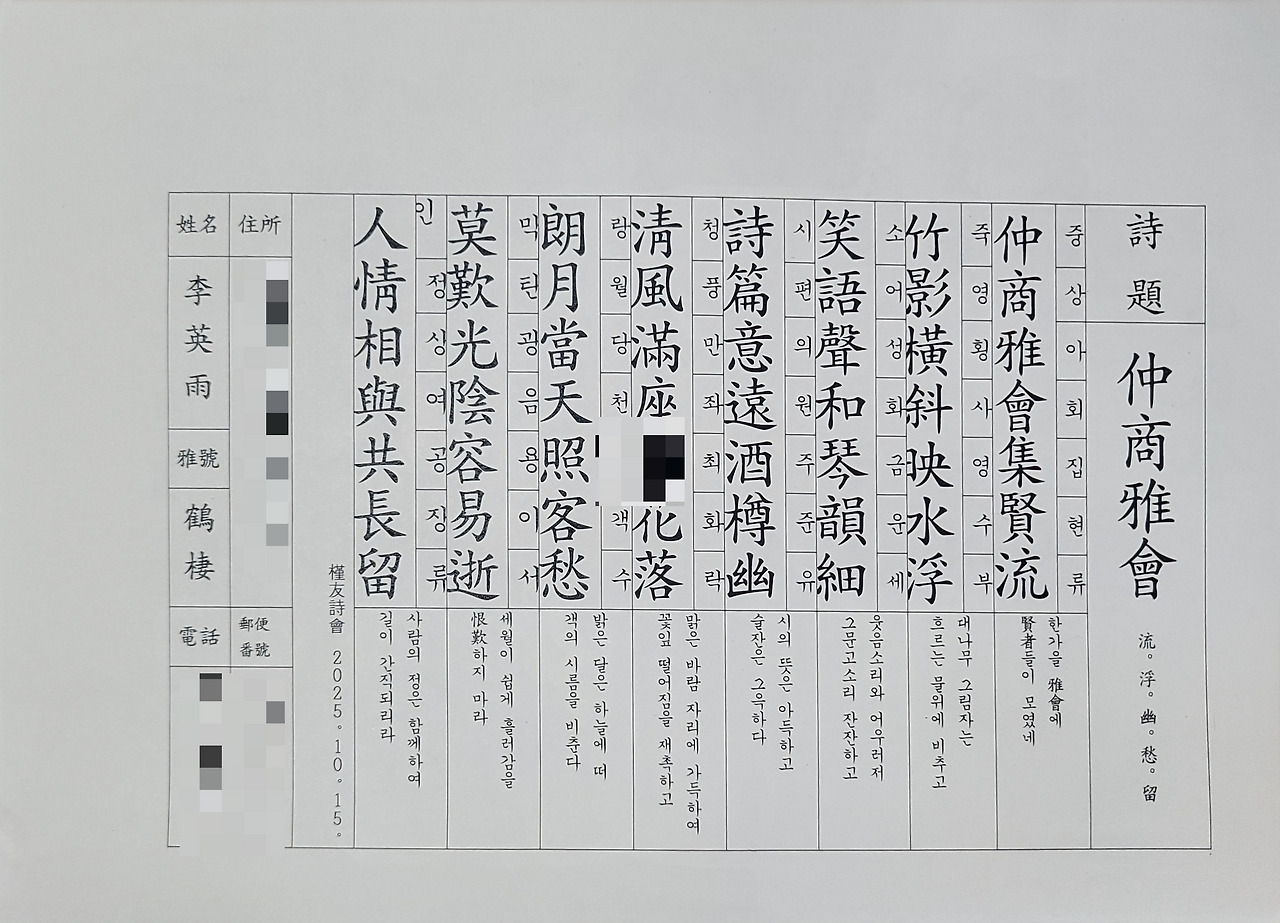 詩題
仲商雅會
流。浮。幽。愁。留
중상아회집현류
仲商雅會集賢流
한가을 雅會에
賢者들이 모였네
죽영횡사영수부
竹影橫斜映水浮
대나무 그림자는
흐르는 물위에 비추고
소어성화금운세
笑語聲和琴韻細
웃음소리와 어우러져
그문고소리 잔잔하고
시편의원주준유
詩篇意遠酒樽幽
시의 뜻은 아득하고
술잔은 그윽하다
청풍만좌최화락
淸風滿座花落
맑은 바람 자리에 가득하여
꽃잎 떨어짐을 재촉하고
랑월당천객수
朗月當天照客愁
밝은 달은 하늘에 떠
객의 시름을 비춘다
막탄광음용이서
莫歎光陰容易逝
세월이 쉽게 흘러감을
恨歎하지 마라
인정상여공장류
人情相與共長留
사람의 정은 함께하여
길이 간직되리라
槿友詩會 2025。10。15。
住所
郵便
番號
姓名
李英雨
雅號
鶴棲
電話